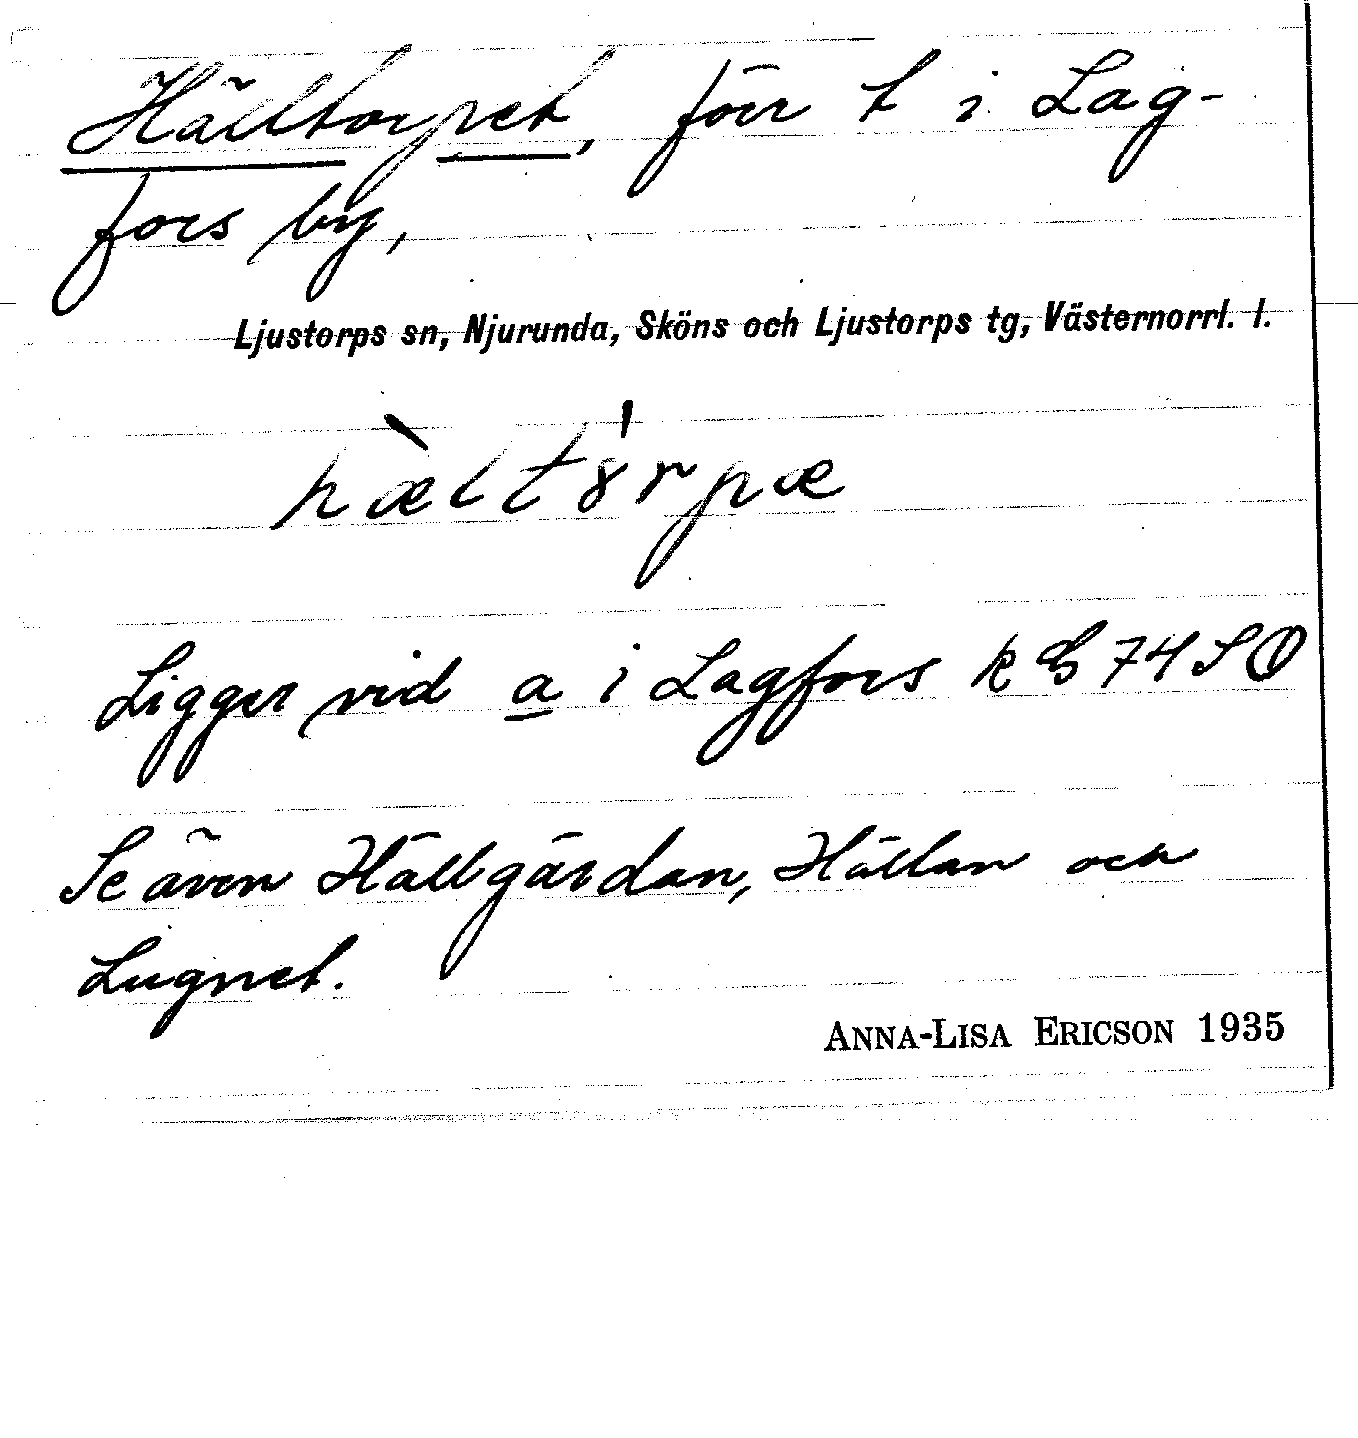 Hälltorpet, förr t i Lag-
fors by,
Ljustorps sn, Njurunda, Sköns och Ljustorps tg, Västernorrl. l.
hæ̀ltórpæ
Ligger vid a i Lagfors k B 74 SO
Se även Hällgärdan, Hällan och
Lugnet.
ANNA-LISA ERICSON 1935